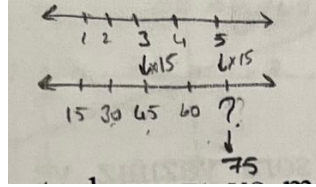 1 2 3 4 5
↓x15 ↓x15
15 30 45 60 ?
↓
75